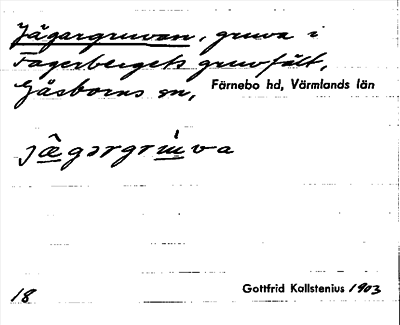 Jägargruvan, gruva i
Fagerbergets gruvfält,
Gåsborns sn, Färnebo hd, Värmlands län
jägərgruva
18 Gottfrid Kallstenius 1903